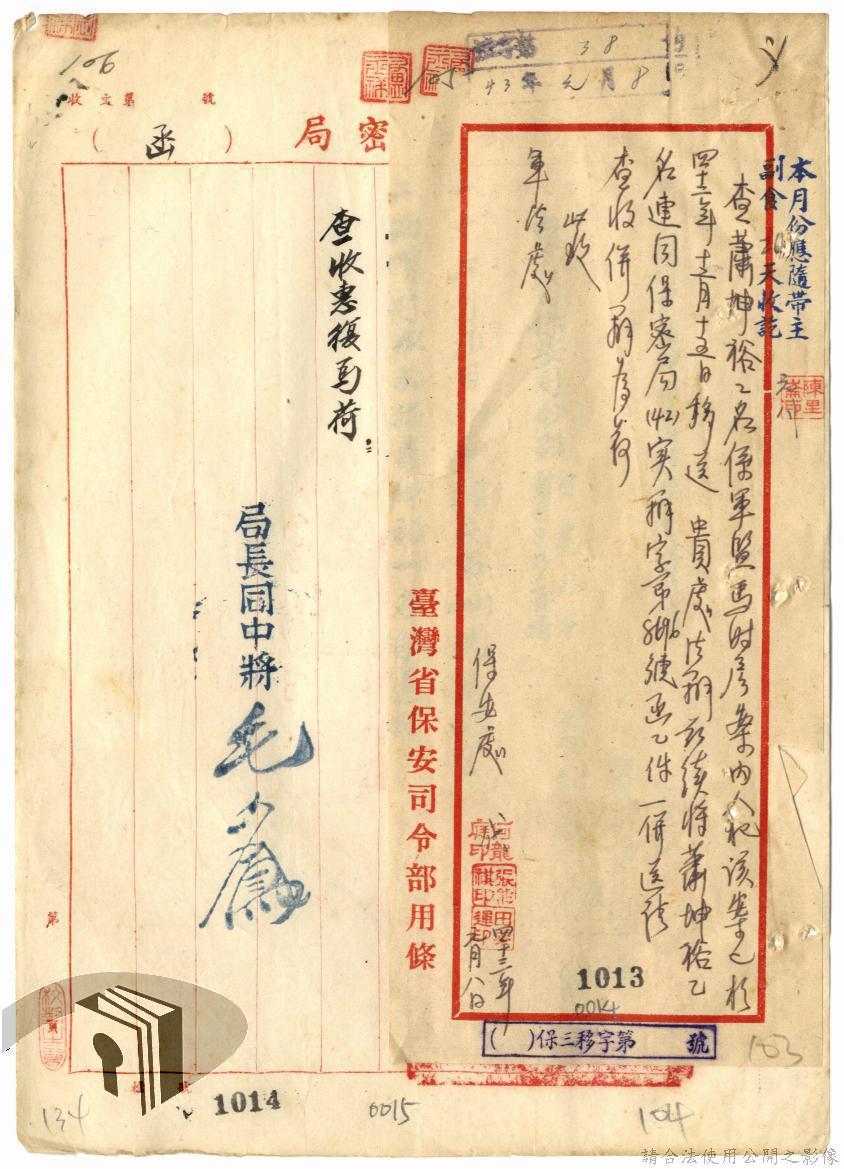 43年元月8
本月份應隨帶主
副食 天收訖
查蕭坤裕乙名係軍監馬時彥案內人犯該案已於
四十二年十二月十五日移送 貴處法辦茲續將蕭坤裕乙
名連同保密局(42)实辦字第 號函乙件一併送請
查收併辦為荷
此致
軍法處
保安處
四十三年
元月八日
1013
0014
( )保三移字第 號
103
臺灣省保安司令部用條
密局
(函)
收文第 號
106
105
查收惠復為荷
局長同中將 毛人鳳
第
1014
0015
134
104
請合法使用公開之影像